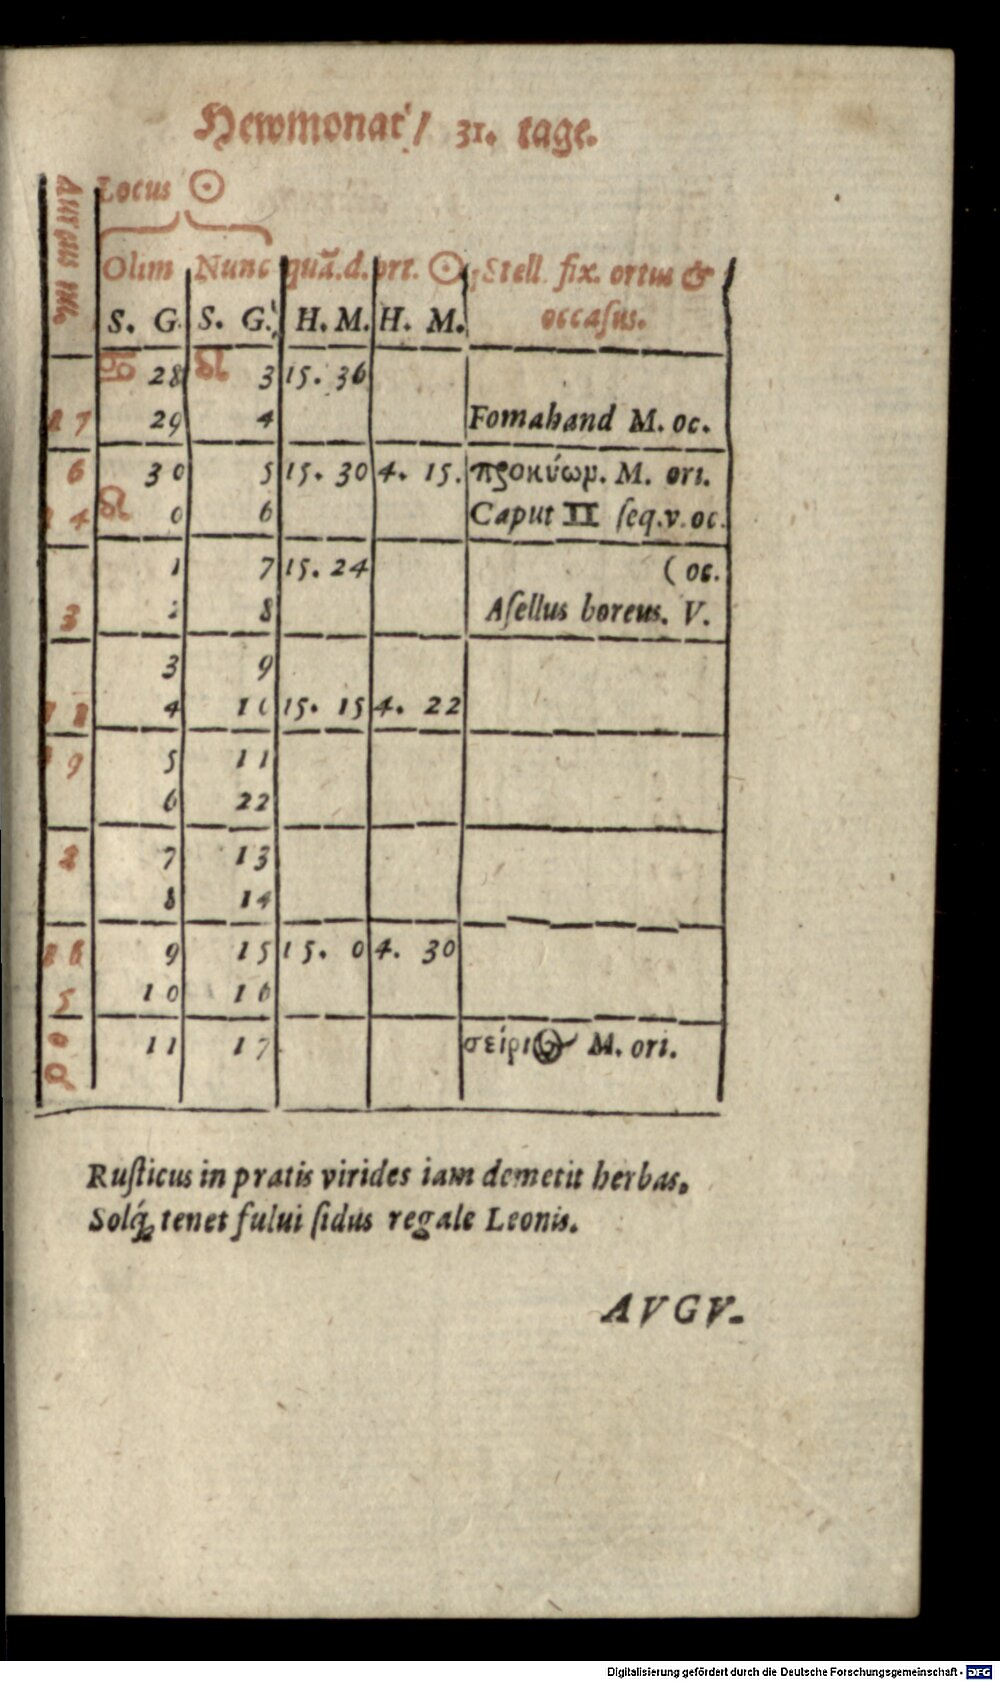 Hewmonat / 31. tage.
Locus ☉
Olim Nunc quā.d. ort. ☉ Stell. fix. ortus &
S. G. S. G. H. M. H. M. occaſus.
♋ 28 ♌ 3 15. 36
17 29 4 Fomahand M. oc.
6 30 5 15. 30 4. 15. προκύωμ. M. ori.
14 ♌ 0 6 Caput II ſeq.v.oc.
1 7 15. 24 (oc.
3 2 8 Aſellus boreus. V.
3 9
11 4 10 15. 15 4. 22
19 5 11
6 22
8 7 13
8 14
16 9 15 15. 0 4. 30
5 10 16
11 17 σείριος M. ori.
Ruſticus in pratis virides iam demetit herbas.
Solq́; tenet fului ſidus regale Leonis.
AVGV-
Digitalisierung gefördert durch die Deutsche Forschungsgemeinschaft - DFG